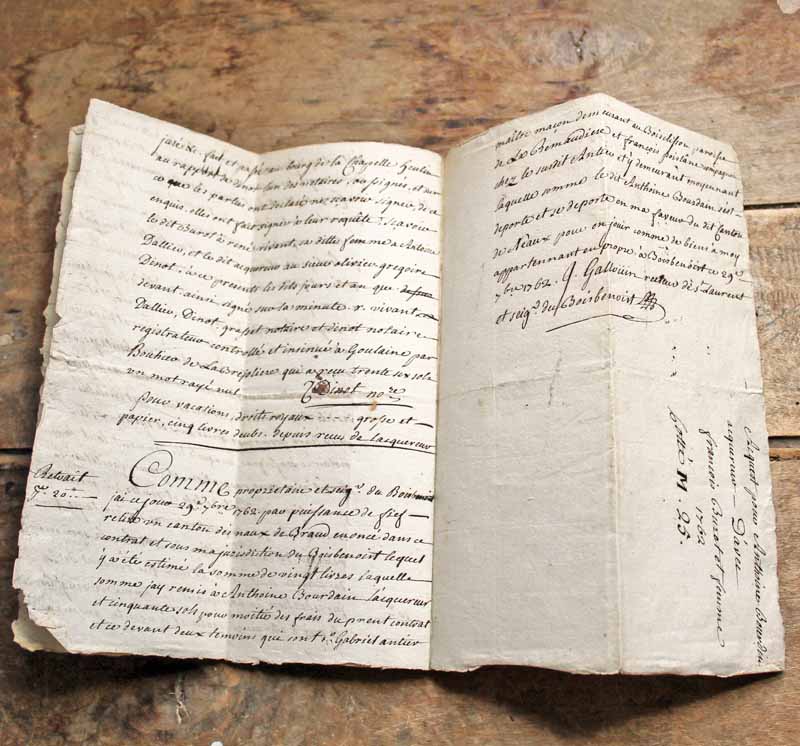 fait et passé au bourg de la Chapelle heulin
au rapport de dinot l'un des notaires, soussignés, et sur
ce que les parties ont déclaré ne scavoir signer de ce
enquis, elles ont fait signer à leur requête: Scavoir
le dit Buret à rené vivant, sa ditte femme a Antoine
Dallieu, et le dit acquereur au sieur olivier gregoire
Dinot, à ce presents les dits jours et an que
devant ainsi signé sur la minute r. vivant,
Dallieu, Dinot, notaire et dinot notaire
registrateur controllé et insinué à Goulaine par
Bouhier de La Brejoliere qui a reçu trente six sols
un mot rayé nul. Dinot nore
pour vacations, droits royaux grosse et
papier, cinq livres depuis recus de lacquereur
Retrait
20
Comme proprietaire et seigr. du Boisbenoist
jai ce jour 29e 7bre 1762 par puissance de fief
retiré un canton des naux de Braud enoncé dans ce
contrat et sous ma jurisdiction du Boisbenoist lequel
y a été estimé la somme de vingt livres laquelle
somme jay remis à Anthoine Bourdain l'acquereur
et cinquante sols pour moitié des frais du present contrat
et ce devant deux temoins qui sont Gabriel antier
maître maçon demeurant au paroisse
de La Remaudiere et françois compagnon
chez le susdit Antier et y demeurant moyennant
laquelle somme le dit Anthoine Bourdain s'est
deporté et se deporte en ma faveur du dit Canton
de Neaux pour en jouir comme de biens a moy
appartennant en propre, à Boisbenoist ce 29e
7bre 1762. J. Galloüin recteur de St Laurent
et seigr du Boisbenoist
Acquest pour Anthoine Bourdain
acquereur Davec
françois Buret et femme
1762
Cotté M 25.